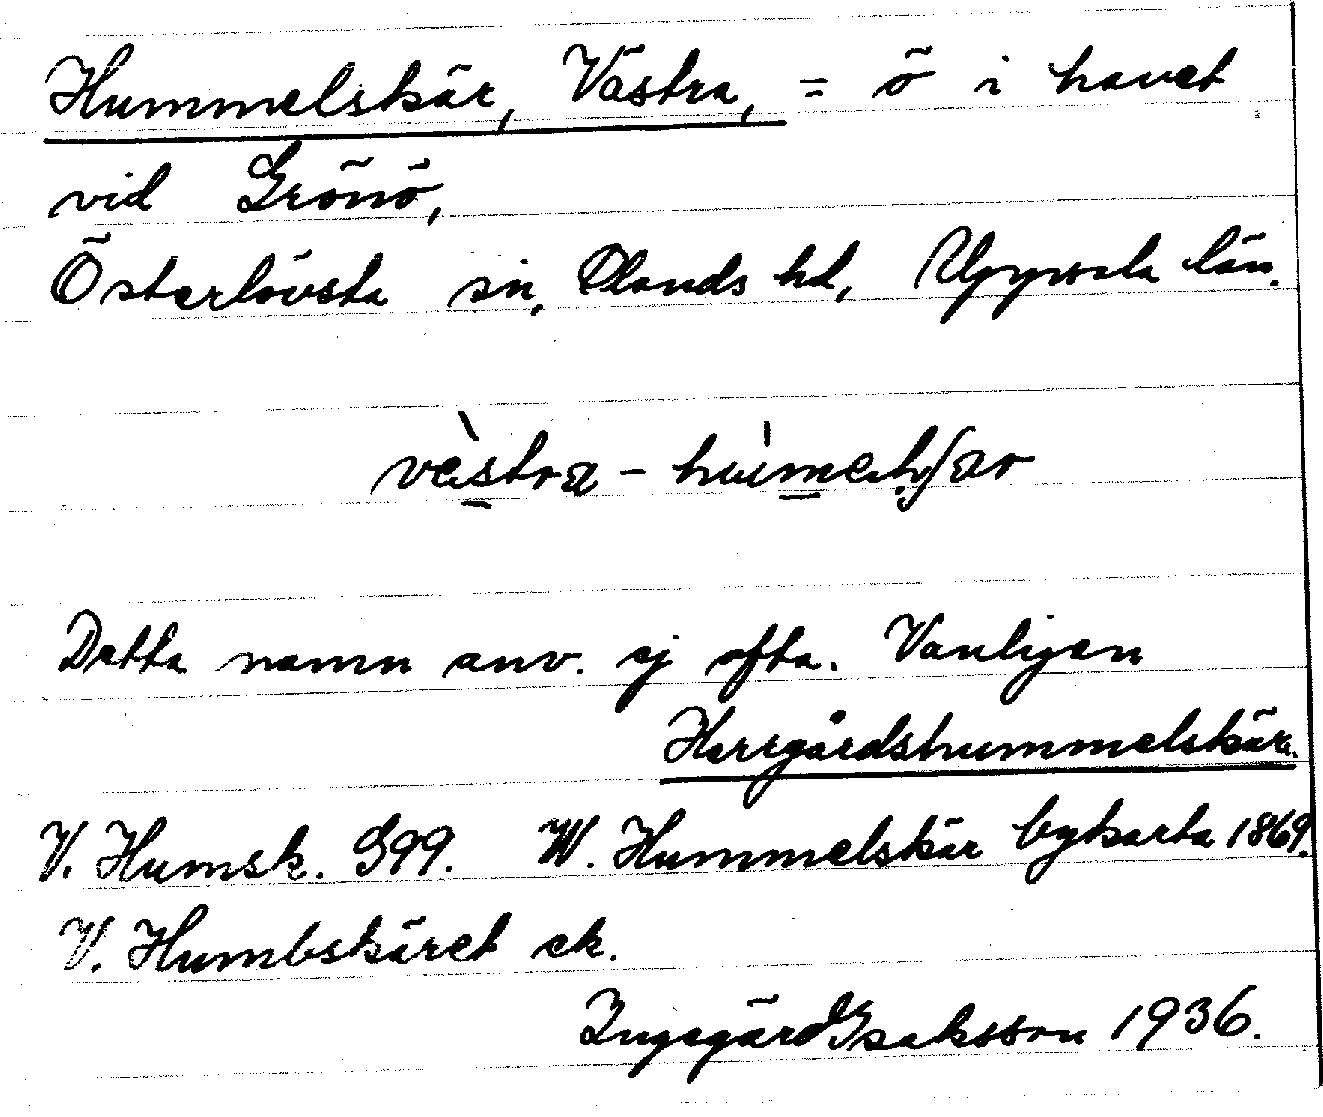 Hummelskär, Västra, = ö i havet
vid Grönö,
Österlövsta sn, Olands hd, Uppsala län.
Detta namn anv. ej ofta. Vanligen
Herrgårdshummelskär.
V. Humsk. G99. W. Hummelskär bykarta 1869.
V. Humbskäret ek.
Ingegärd Isaksson 1936.